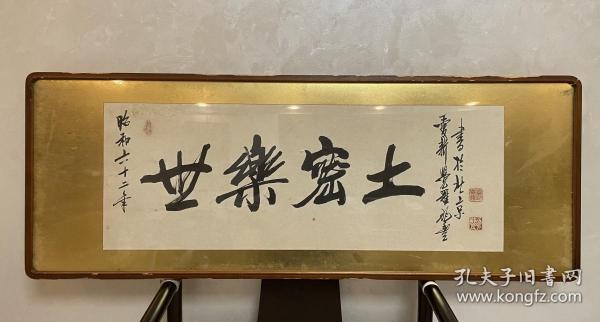 昭和六十二年
世樂密土
愛新覺羅
書於北京
孔夫子旧书网
www.kongfz.com